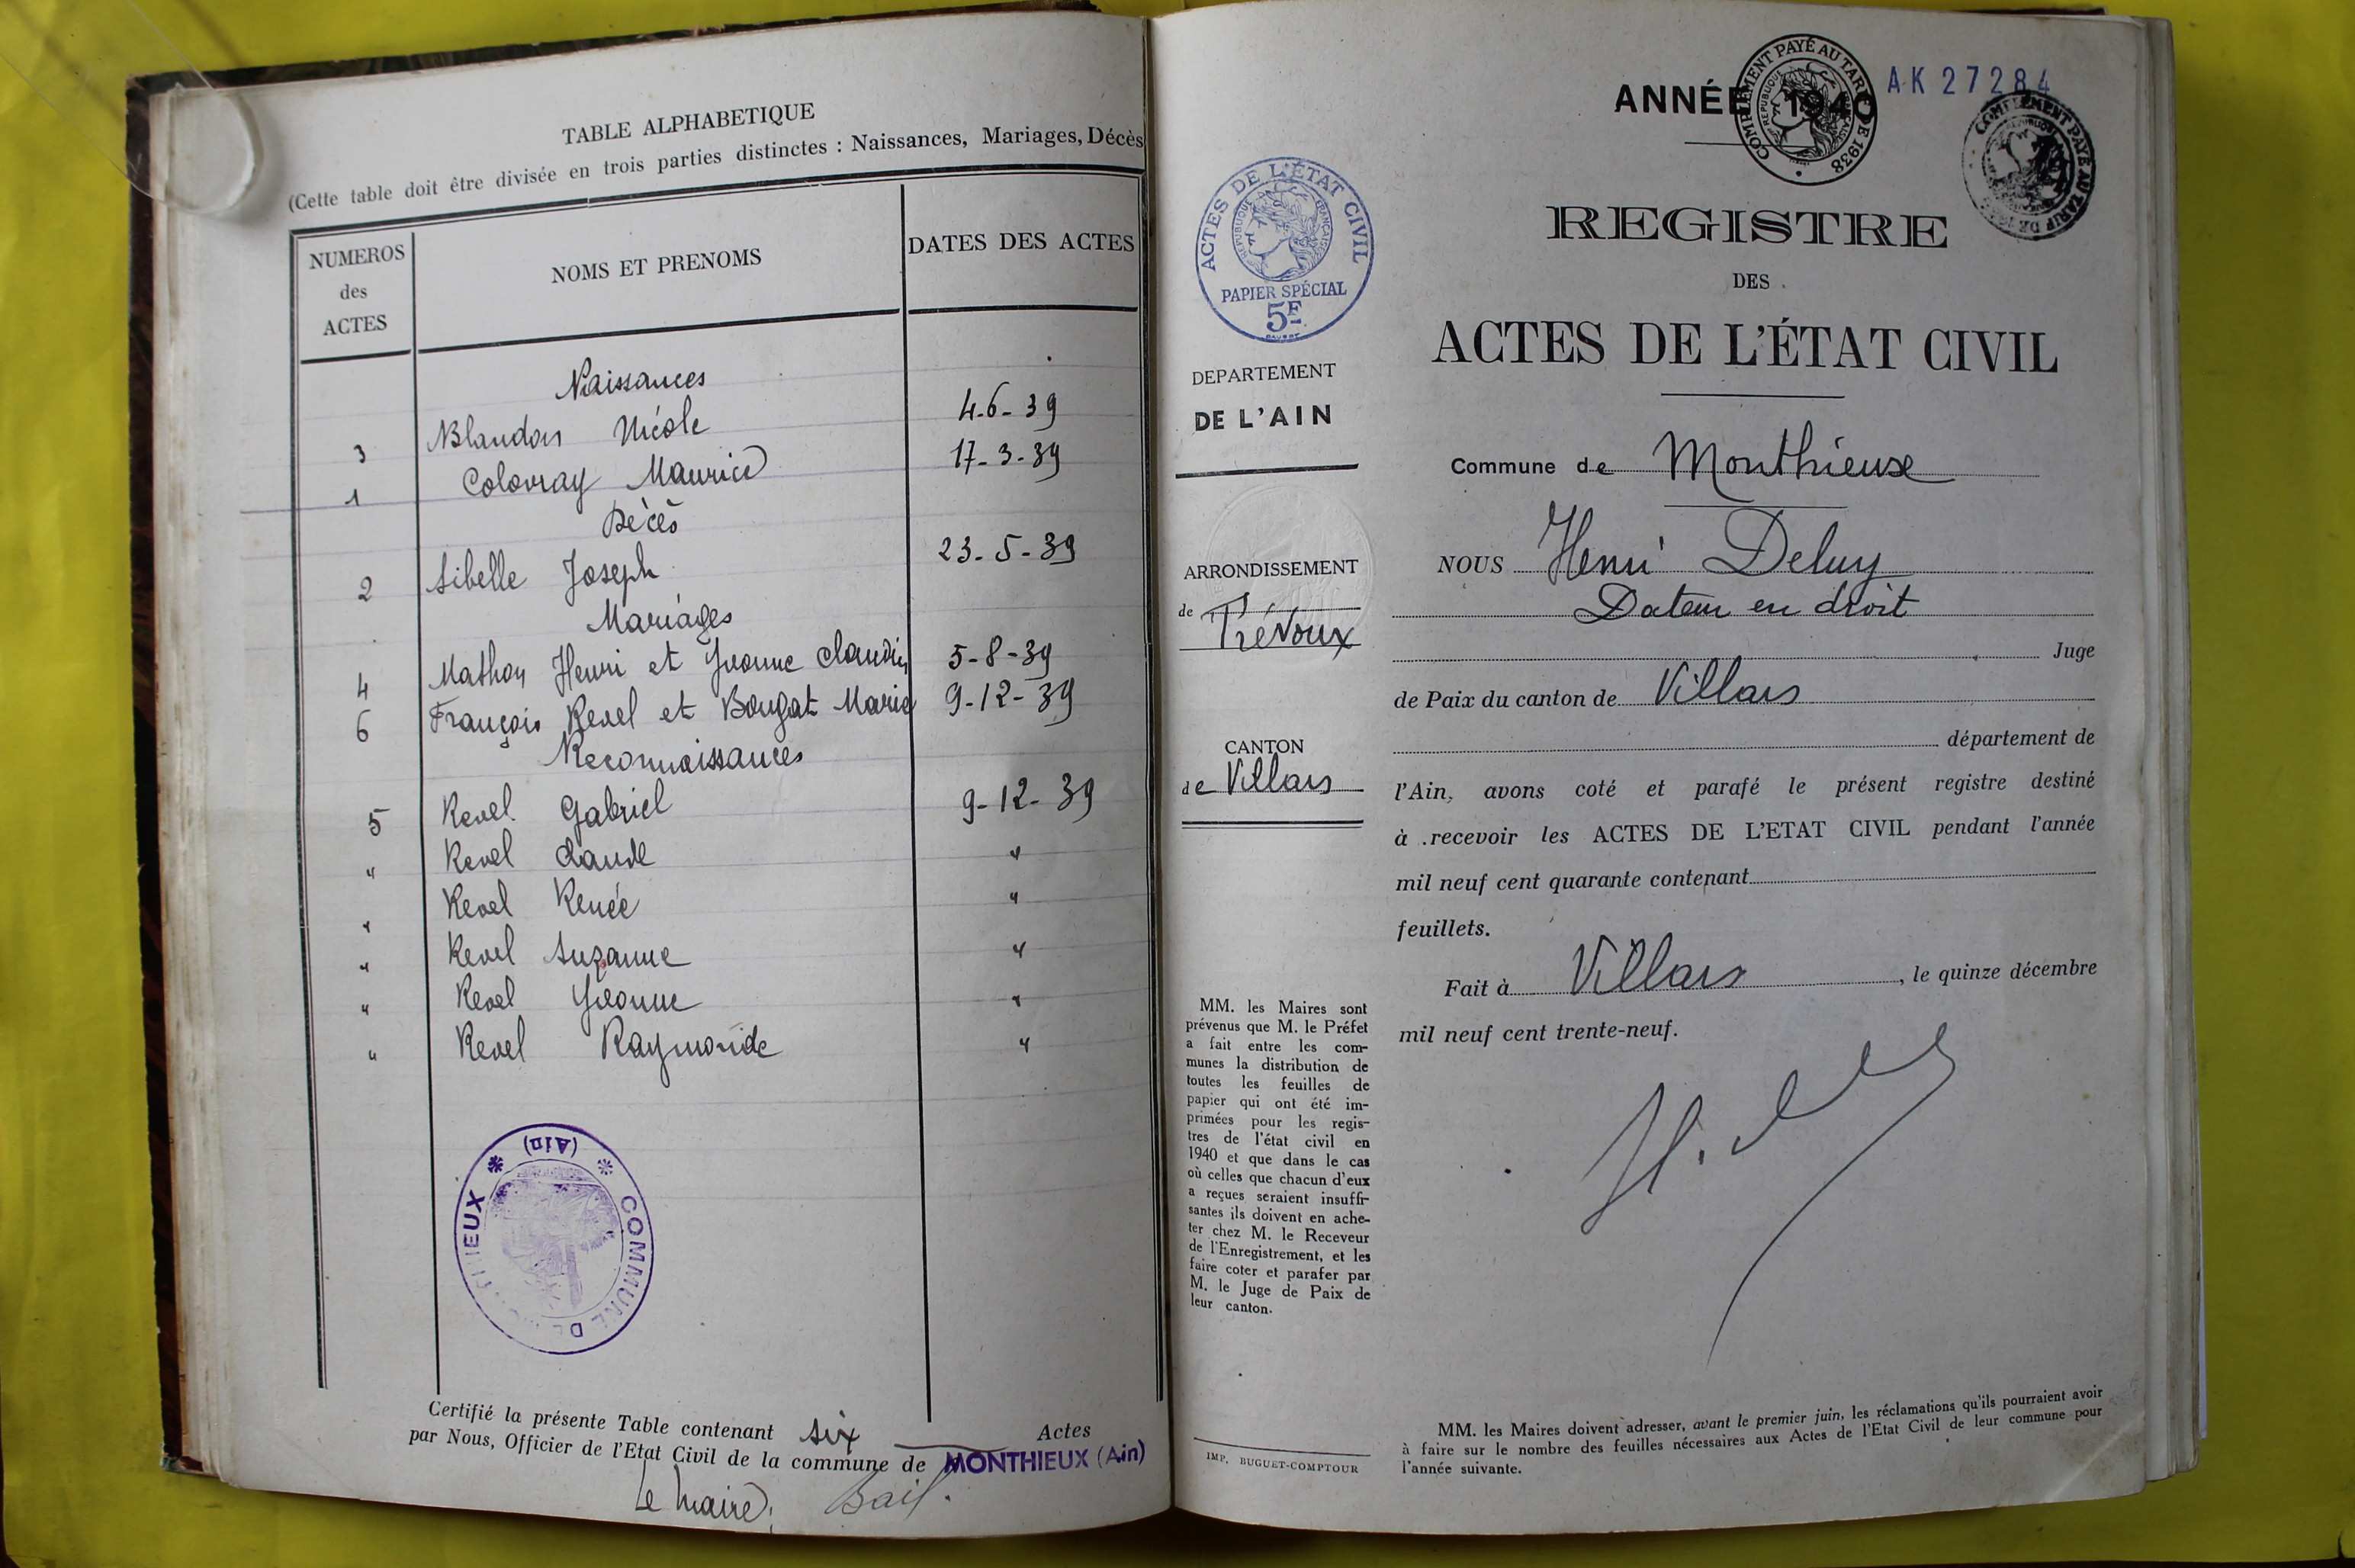 TABLE ALPHABETIQUE
(Cette table doit être divisée en trois parties distinctes : Naissances, Mariages, Décès
NUMEROS des ACTES
NOMS ET PRENOMS
DATES DES ACTES
Naissances
3 Blandon Nicole 4-6-39
1 Colovray Maurice 17-3-39
Décès
2 Sibelle Joseph 23-5-39
Mariages
4 Mathon Henri et Yvonne Claudin 5-8-39
6 François Revel et Bougat Marie 9-12-39
Reconnaissances
5 Revel Gabriel 9-12-39
" Revel Claude "
" Revel Renée "
" Revel Suzanne "
" Revel Yvonne "
" Revel Raymonde "
COMMUNE DE
(Ain)
Certifié la présente Table contenant six Actes
par Nous, Officier de l'Etat Civil de la commune de MONTHIEUX (Ain)
Le Maire, Bail.
ANNÉE 1940
AK 27284
COMPLÉMENT PAYÉ AU TARIF DE 1938
REPUBLIQUE FRANÇAISE
COMPLÉMENT PAYÉ AU TARIF DE
ACTES DE L'ÉTAT CIVIL
REPUBLIQUE FRANÇAISE
PAPIER SPÉCIAL
5F
REGISTRE
DES
ACTES DE L'ÉTAT CIVIL
DEPARTEMENT
DE L'AIN
ARRONDISSEMENT
de Trévoux
CANTON
de Villars
MM. les Maires sont
prévenus que M. le Préfet
a fait entre les com-
munes la distribution de
toutes les feuilles de
papier qui ont été im-
primées pour les regis-
tres de l'état civil en
1940 et que dans le cas
où celles que chacun d'eux
a reçues seraient insuffi-
santes ils doivent en ache-
ter chez M. le Receveur
de l'Enregistrement, et les
faire coter et parafer par
M. le Juge de Paix de
leur canton.
IMP. BUGUET-COMPTOUR
Commune de Monthieux
NOUS Henri Deluy
Docteur en droit
Juge
de Paix du canton de Villars
département de
l'Ain, avons coté et parafé le présent registre destiné
à recevoir les ACTES DE L'ETAT CIVIL pendant l'année
mil neuf cent quarante contenant
feuillets.
Fait à Villars, le quinze décembre
mil neuf cent trente-neuf.
MM. les Maires doivent adresser, avant le premier juin, les réclamations qu'ils pourraient avoir
à faire sur le nombre des feuilles nécessaires aux Actes de l'Etat Civil de leur commune pour
l'année suivante.